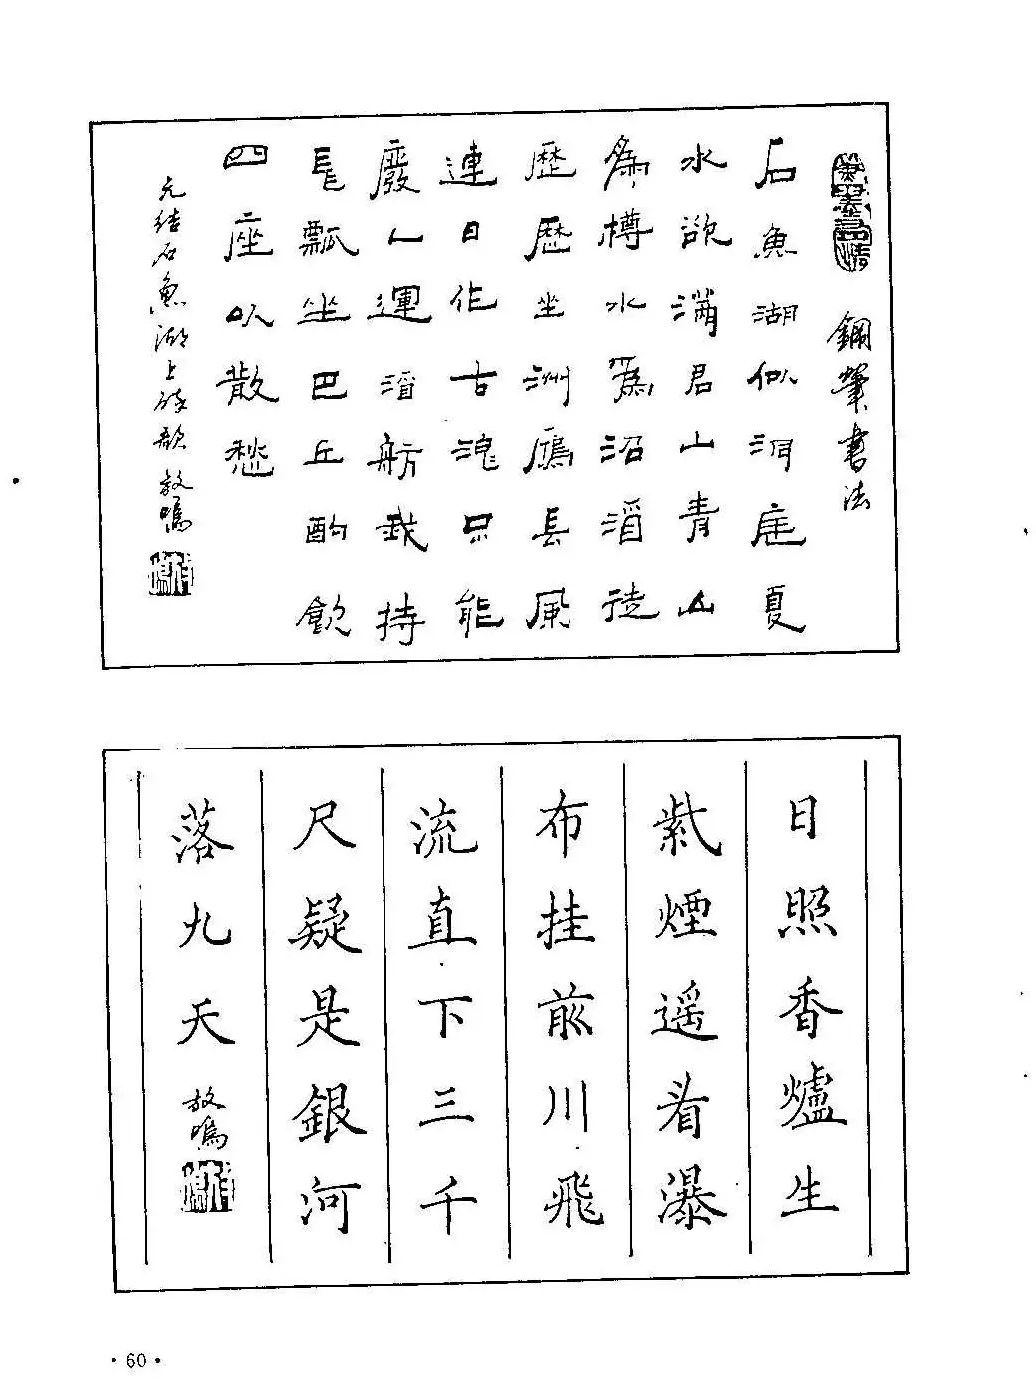 鋼筆書法
石魚湖似洞庭夏
水欲滿君山青山
為樽水為沼酒徒
歷歷坐洲島長風
連日作大浪不能
廢人運酒舫我持
長瓢坐巴丘酌飲
四座以散愁
元結石魚湖上醉歌 放鳴
日照香爐生
紫煙遥看瀑
布挂前川飛
流直下三千
尺疑是銀河
落九天 放鳴
·60·